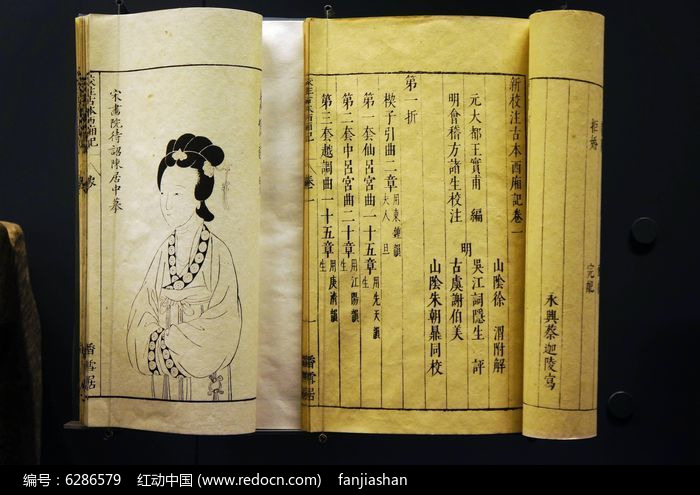 新校注古本西廂記卷一
元大都王實甫 編
明會稽方諸生校注
明
山陰徐 渭附解
吳江詞隱生 評
古虞謝伯美
山陰朱朝鼎同校
第一折
楔子引曲二章用東鍾韻
夫人 旦
第一套仙呂宮曲一十五章用先天韻
生
第二套中呂宮曲二十章用江陽韻
生
第三套越調曲一十五章用庚清韻
生
卷一
一
香雪居
宋畫院待詔陳居中摹
校注古本西廂記
香雪居
永興蔡迦陵寫
完
编号：6286579 红动中国 (www.redocn.com) fanjiashan